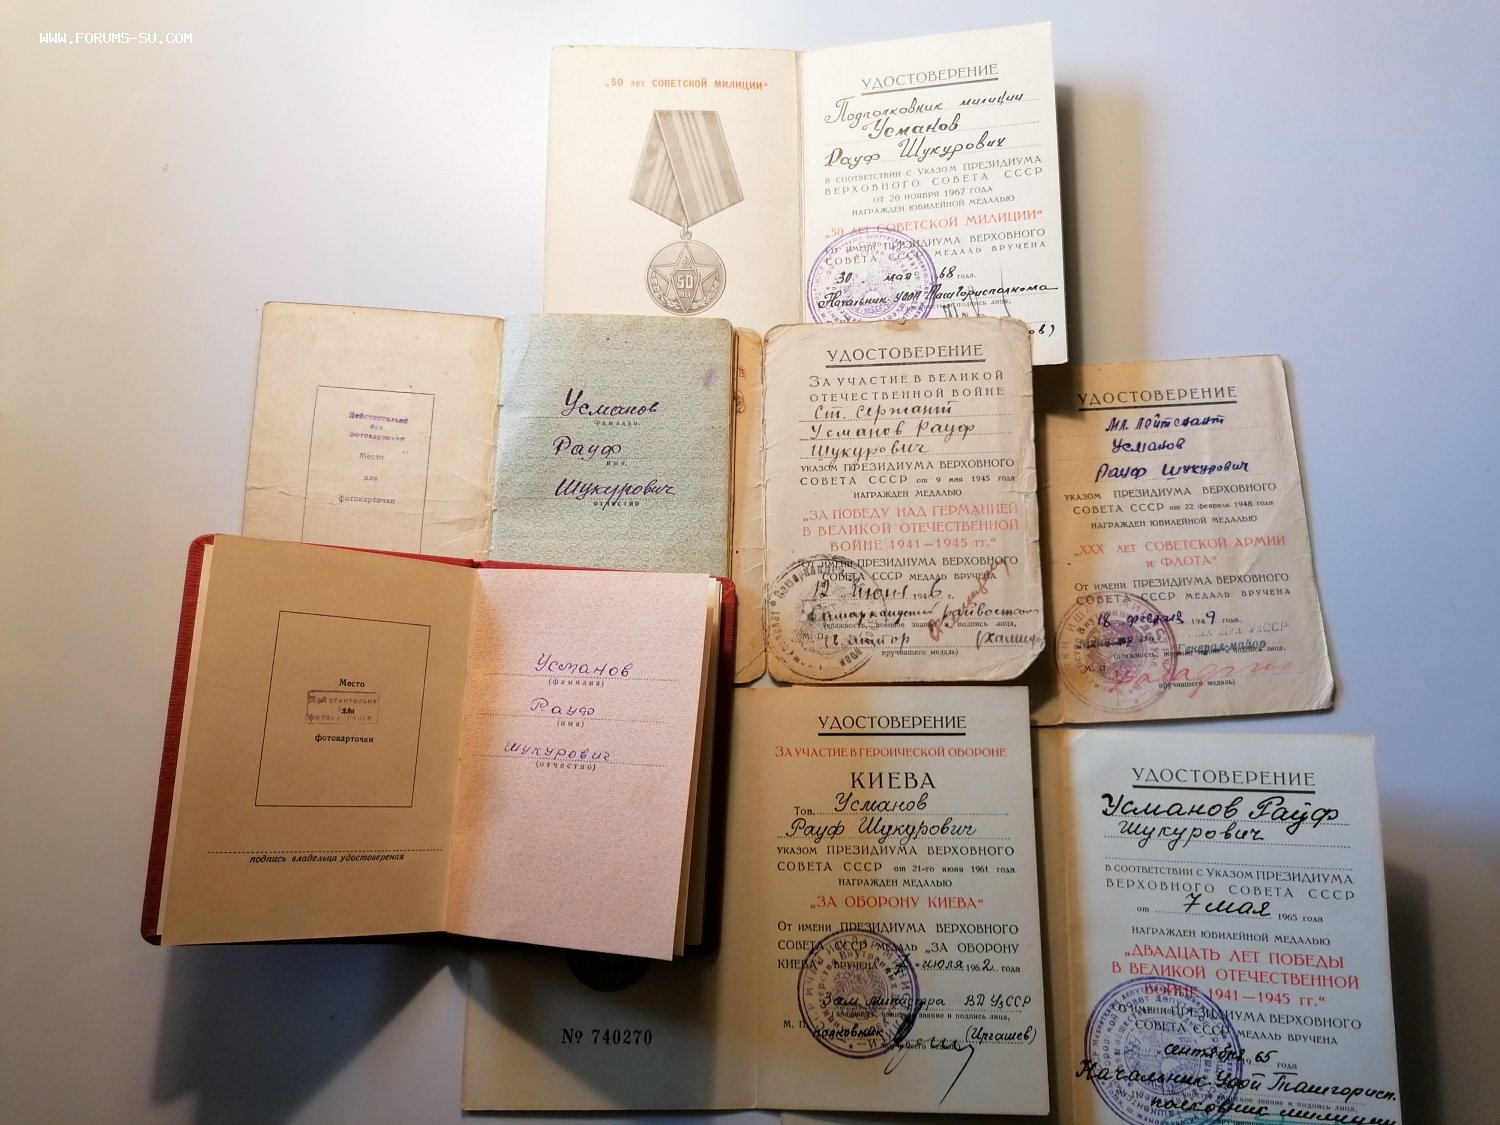 WWW.FORUMS-SU.COM
„50 лет СОВЕТСКОЙ МИЛИЦИИ“
50
ЛЕТ
УДОСТОВЕРЕНИЕ
Подполковник милиции
Усманов
Рауф Шукурович
В СООТВЕТСТВИИ С УКАЗОМ ПРЕЗИДИУМА
ВЕРХОВНОГО СОВЕТА СССР
ОТ 20 НОЯБРЯ 1967 ГОДА
НАГРАЖДЕН ЮБИЛЕЙНОЙ МЕДАЛЬЮ
„50 ЛЕТ СОВЕТСКОЙ МИЛИЦИИ“
ОТ ИМЕНИ ПРЕЗИДИУМА ВЕРХОВНОГО
СОВЕТА СССР МЕДАЛЬ ВРУЧЕНА
30 мая 68 года.
Начальник УООП Ташгорисполкома
подпись лица,
Действительно
без
фотокарточки
Место
для
фотокарточки
Усманов
Фамилия,
Рауф
имя,
Шукурович
отчество
УДОСТОВЕРЕНИЕ
ЗА УЧАСТИЕ В ВЕЛИКОЙ
ОТЕЧЕСТВЕННОЙ ВОЙНЕ
Ст. сержант
Усманов Рауф
Шукурович
УКАЗОМ ПРЕЗИДИУМА ВЕРХОВНОГО
СОВЕТА СССР от 9 мая 1945 года
НАГРАЖДЕН МЕДАЛЬЮ
„ЗА ПОБЕДУ НАД ГЕРМАНИЕЙ
В ВЕЛИКОЙ ОТЕЧЕСТВЕННОЙ
ВОЙНЕ 1941—1945 гг.“
ОТ ИМЕНИ ПРЕЗИДИУМА ВЕРХОВНОГО
СОВЕТА СССР МЕДАЛЬ ВРУЧЕНА
12 июня 1946 г.
(должность, военное звание и подпись лица,
М. П. майор
вручившего медаль)
УДОСТОВЕРЕНИЕ
Мл. лейтенант
Усманов
Рауф Шукурович
УКАЗОМ ПРЕЗИДИУМА ВЕРХОВНОГО
СОВЕТА СССР от 22 февраля 1948 года
НАГРАЖДЕН ЮБИЛЕЙНОЙ МЕДАЛЬЮ
„XXX ЛЕТ СОВЕТСКОЙ АРМИИ
И ФЛОТА“
ОТ ИМЕНИ ПРЕЗИДИУМА ВЕРХОВНОГО
СОВЕТА СССР МЕДАЛЬ ВРУЧЕНА
18 февраля 1949 г.
Дел УзССР
Генерал-майор
М. П.
вручившего медаль)
Место
Действительно
для
фотокарточки
подпись владельца удостоверения
Усманов
(фамилия)
Рауф
(имя)
Шукурович
(отчество)
№ 740270
УДОСТОВЕРЕНИЕ
ЗА УЧАСТИЕ В ГЕРОИЧЕСКОЙ ОБОРОНЕ
КИЕВА
Тов. Усманов
Рауф Шукурович
УКАЗОМ ПРЕЗИДИУМА ВЕРХОВНОГО
СОВЕТА СССР от 21-го июня 1961 года
НАГРАЖДЕН МЕДАЛЬЮ
„ЗА ОБОРОНУ КИЕВА“
ОТ ИМЕНИ ПРЕЗИДИУМА ВЕРХОВНОГО
СОВЕТА СССР МЕДАЛЬ „ЗА ОБОРОНУ
КИЕВА“ ВРУЧЕНА июля 1962 года
Зам. министра ВД УзССР
звание и подпись лица,
М. П. полковник (Иргашев)
УДОСТОВЕРЕНИЕ
Усманов Рауф
Шукурович
В СООТВЕТСТВИИ С УКАЗОМ ПРЕЗИДИУМА
ВЕРХОВНОГО СОВЕТА СССР
от 7 мая 1965 года
НАГРАЖДЕН ЮБИЛЕЙНОЙ МЕДАЛЬЮ
„ДВАДЦАТЬ ЛЕТ ПОБЕДЫ
В ВЕЛИКОЙ ОТЕЧЕСТВЕННОЙ
ВОЙНЕ 1941—1945 гг.“
ОТ ИМЕНИ ПРЕЗИДИУМА ВЕРХОВНОГО
СОВЕТА СССР МЕДАЛЬ ВРУЧЕНА
сентября 1965 года
Начальник УООП Ташгорисп.
звание и подпись лица,
полковник милиции